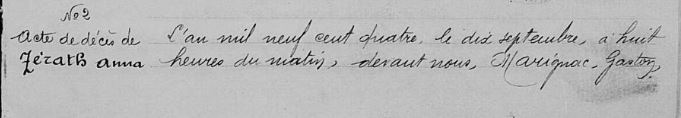 No 2
Acte de décès de
Zérath Anna
L'an mil neuf cent quatre, le dix septembre, à huit
heures du matin, devant nous, Marignac, Gaston,